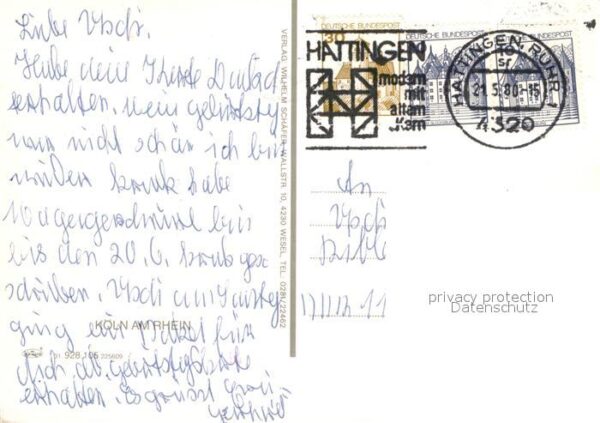 Liebe Uschi.
Habe dein Karte Dankend
erhalten, mein geburtstag
war nicht schön ich bin
wieder krank habe
Magengeschwüre bin
bis den 20.6. krank ge
schrieben. Uschi am Samstag
ging ein Paket für
dich ab. geburtstagskarte
erhalten. Es grüsst
KÖLN AM RHEIN
51 928 105 225609
VERLAG WILHELM SCHÄFER, WALLSTR. 10, 4230 WESEL, TEL. 0281/22462
DEUTSCHE BUNDESPOST
30
DEUTSCHE BUNDESPOST
DEUTSCHE BUNDESPOST
HATTINGEN
modern
mit
altem
Kern
HATTINGEN, RUHR 1
21.5.80-15
4320
An
Uschi
11
privacy protection
Datenschutz